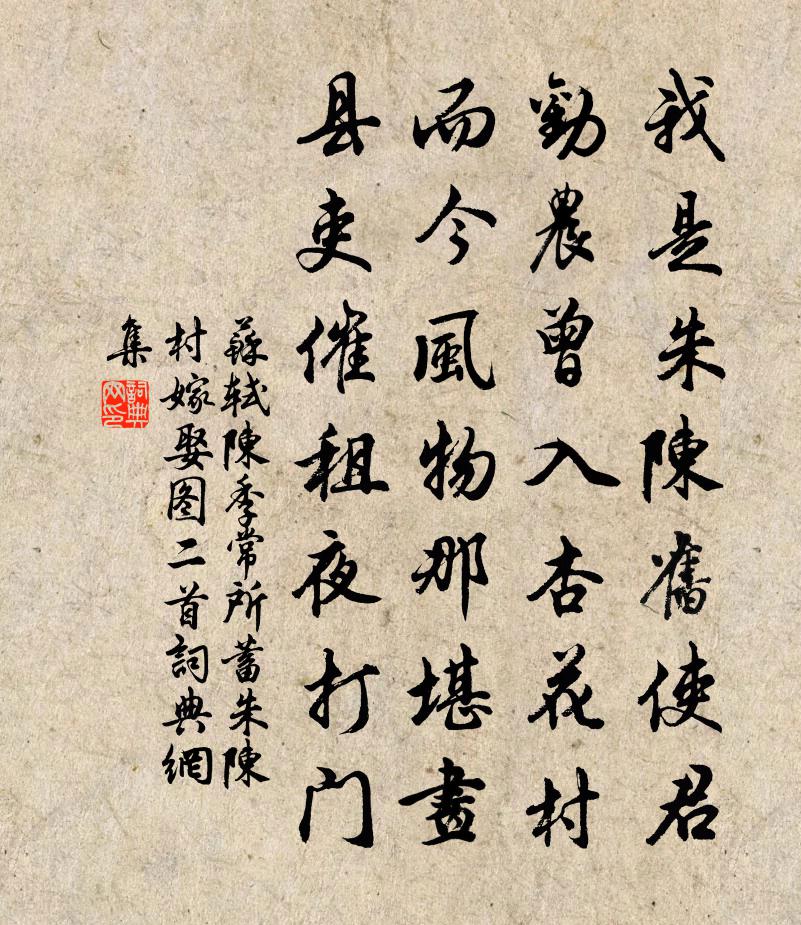 我是朱陳舊使君
勸農曾入杏花村
而今風物那堪畫
县吏催租夜打門
蘇軾陳季常所蓄朱陳
村嫁娶图二首詞典網
集
詞典
网印